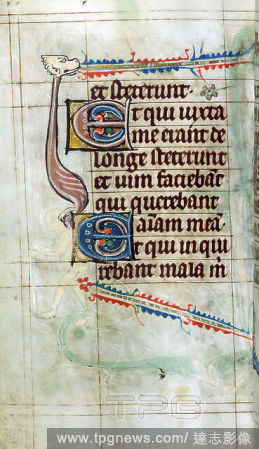 et steterunt.
Et qui iuxta
me erant de
longe steterunt
et uim faciebāt
qui querebant
aīam meā
Et qui inqui
rebant mala m
TPG
www.tpgnews.com/ 達志影像